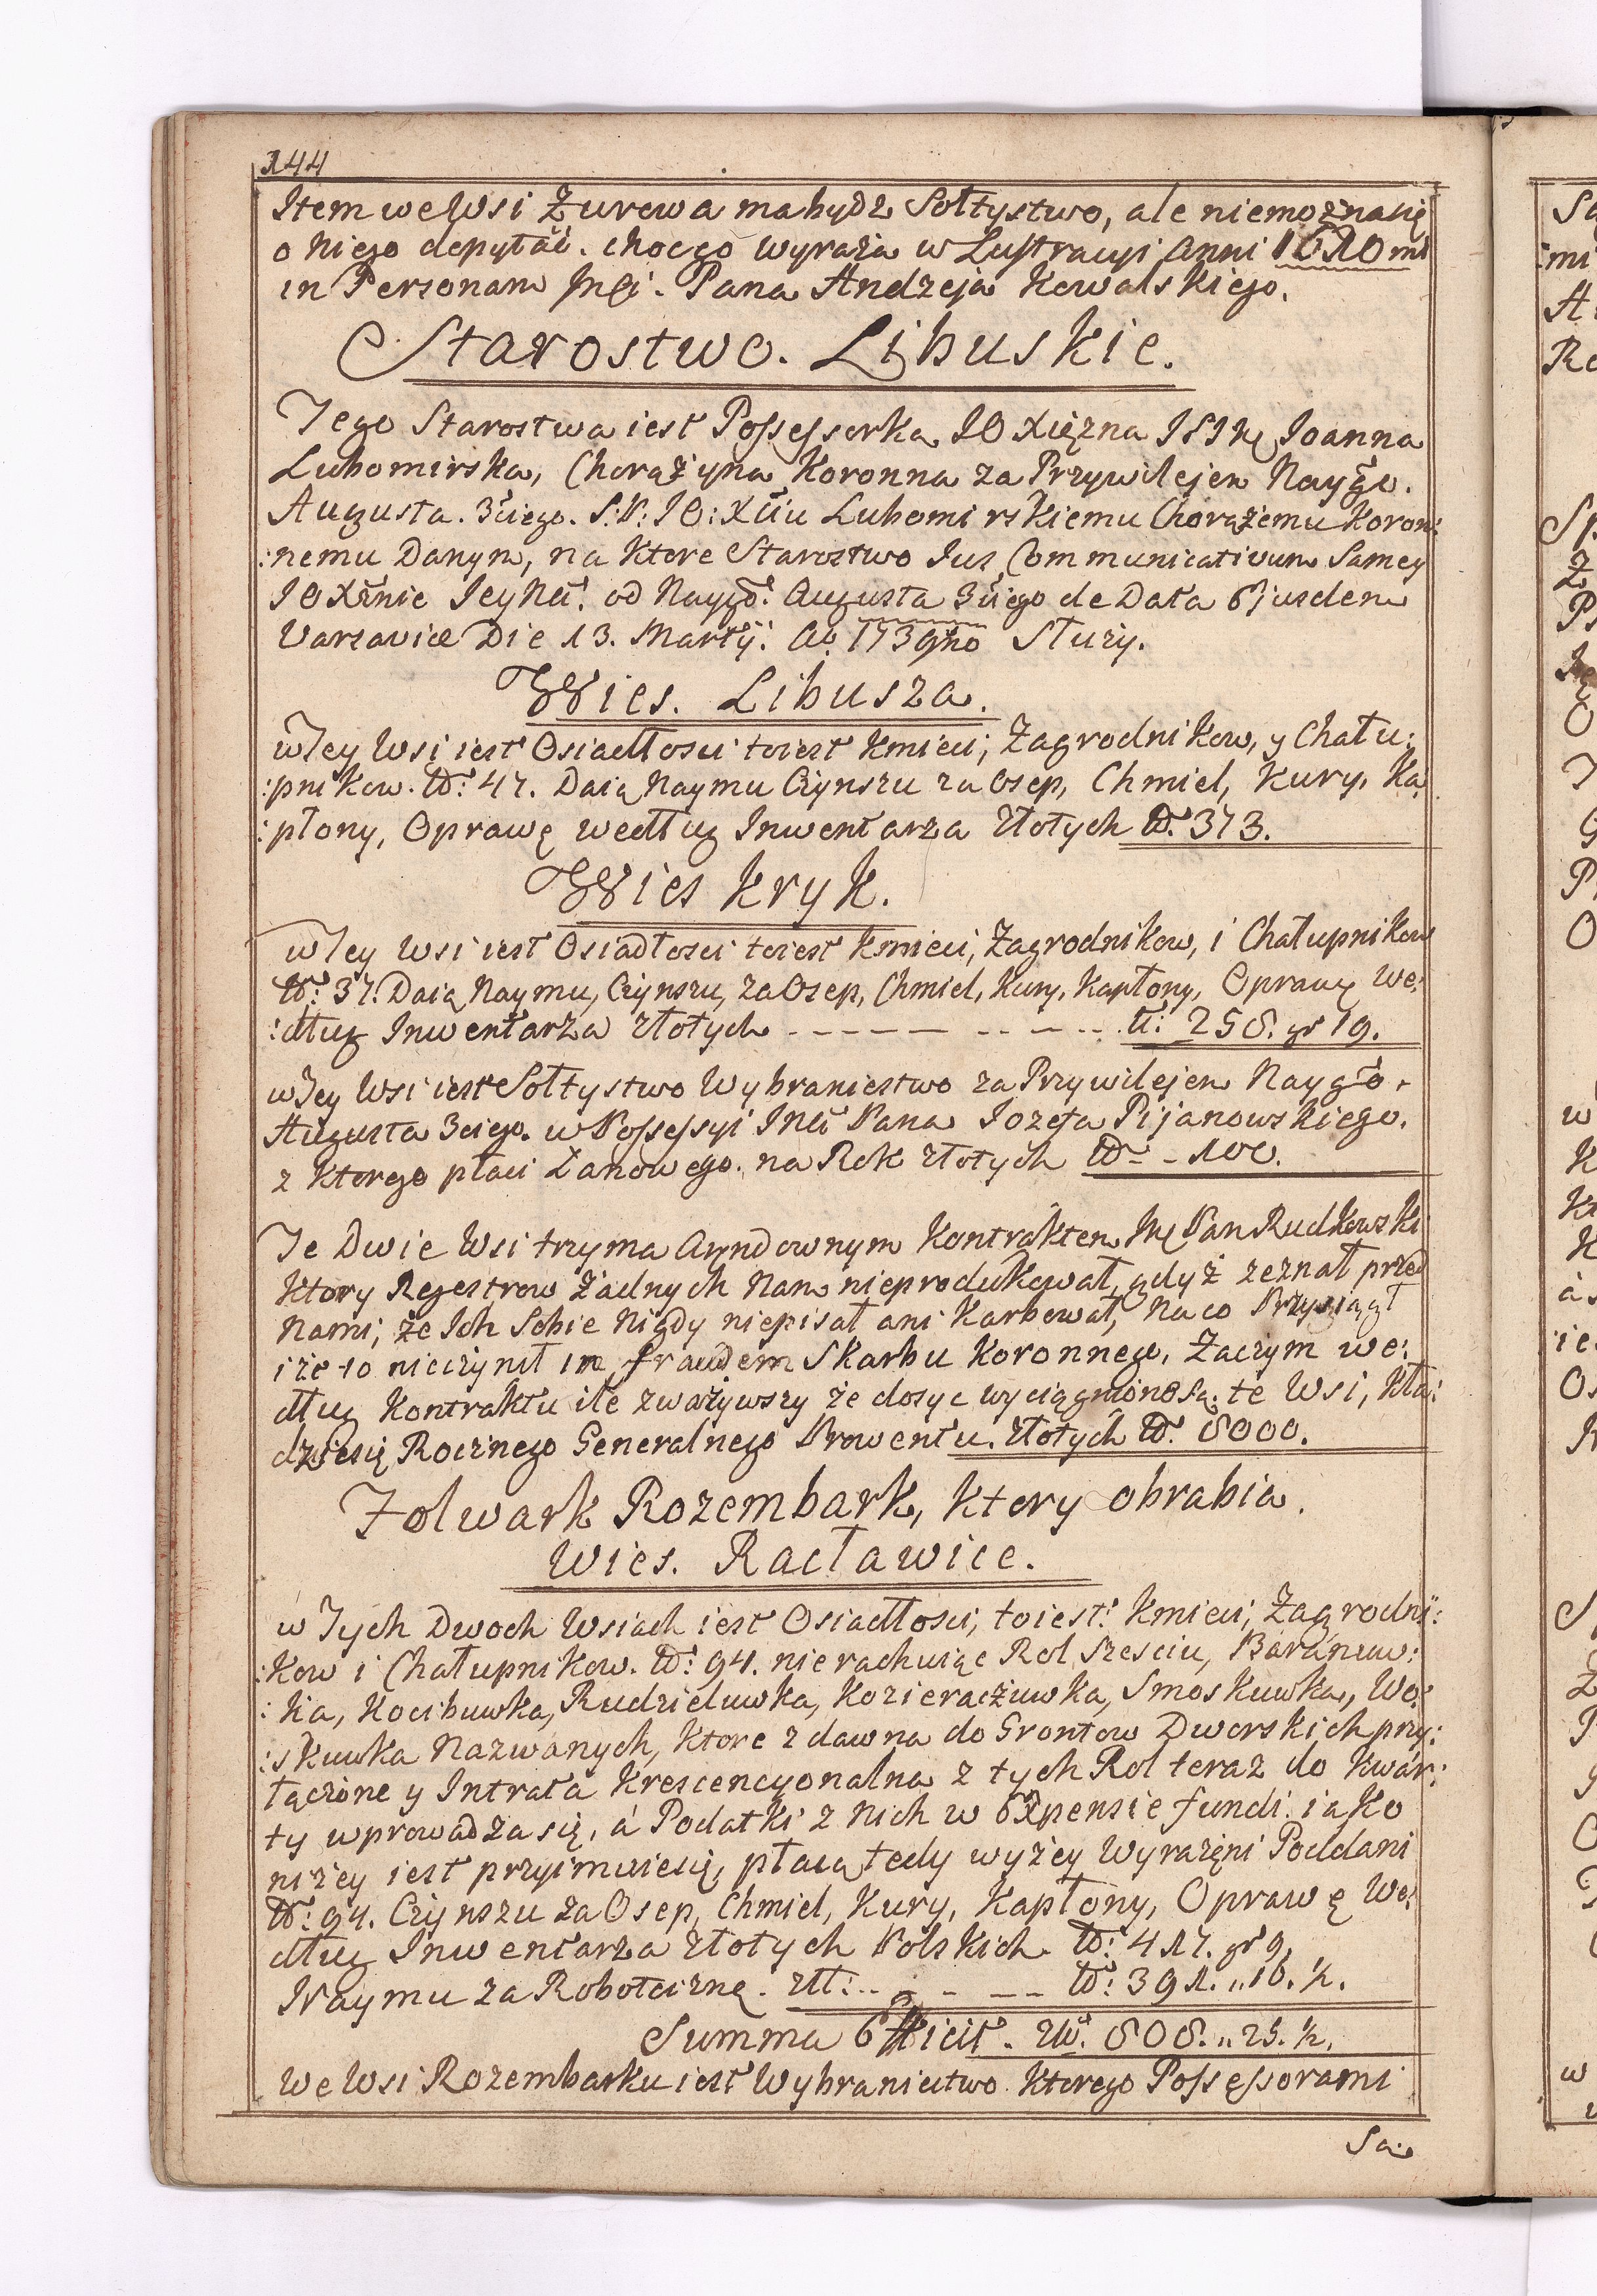 144
Item we Wsi Żurowa ma bydz Sołtystwo, ale niemożna się
o niego dopytáć. choc go wyraża w Lustracyi Anni 1610 mi
in Personam Pana Andrzeja Kowalskiego.
Starostwo. Libuskie.
Tego Starostwa iest Possessorka JO Xiężna Joanna
Lubomirska, Chorążyna Koronna za Przywilejem Naygo.
Augusta. 3ciego. S: P: JO: Xciu Lubomirskiemu Chorążemu Koron:
:nemu Danym, na ktore Starostwo Jus Communicativum Samey
JO Xżnie Jey od Naygo. Augusta 3ciego de Data Ejusdem
Varsaviæ Die 13. Martij. Ao. 1739no Służy.
Wies. Libusza.
w Tey Wsi iest Osiadłosci to iest Kmieci, Zagrodnikow, y Chału:
:pnikow. No: 47. Daią Naymu Czynszu za Osep, Chmiel, Kury, Ka
:płony, Oprawę według Inwentarza Złotych No. 373.
Wies Kryk.
w Tey Wsi iest Osiadłosci to iest Kmieci, Zagrodnikow, i Chałupnikow
No: 37. Daią Naymu, Czynszu, za Osep, Chmiel, Kury, Kapłony, Oprawę We:
:dług Inwentarza Złotych - - - - - - - - No: 258. gr 19.
w Tey Wsi iest Sołtystwo Wybraniestwo za Przywilejem Naygo.
Augusta 3ciego. w Possessyi Pana Jozefa Pijanowskiego.
z ktorego płaci Łanowego. na Rok Złotych No - 100.
Te Dwie Wsi trzyma Arendownym Kontraktem Pan Rudkowski
ktory Regestrow Żadnych Nam nieprodukował, gdyż zeznał przed
Nami, że Ich Sobie Nigdy niepisał ani Karbował, Na co Przysiągł
i że to nieczynił in fraudem Skarbu Koronnego, Zaczym we:
dług Kontraktu ile zważywszy że dosyc wyciągnione są te Wsi, Kła:
dzie się Rocznego Generalnego Prowentu. Złotych No. 8000.
Folwark Rozembark, ktory obrabia.
Wies. Racławice.
w Tych Dwoch Wsiach iest Osiadłosci, to iest: Kmieci, Zagrodni:
:kow i Chałupnikow. No: 94. nie rachuiąc Rol Szesciu, Baranuw:
:ka, Kocibuwka, Rudzieluwka, Kozieraczuwka, Smoskuwka, Wo:
:skuwka Nazwanych, ktore z dawna do Grontow Dworskich przy:
łączone y Intrata Krescencyonalna z tych Rol teraz do Kwar:
ty wprowadza się, á Podatki z Nich w Expensie fundi. iako
niżey iest przyimuie się, płacą tedy wyżey Wyrażeni Poddani
No: 94. Czynszu za Osep, Chmiel, Kury, Kapłony, Oprawę We:
dług Inwentarza Złotych Polskich. No: 417. gr 9.
Naymu za Robociznę. Złł: - - - - No: 391. " 16. ½.
Summa Efficit. Złł. 808. " 25. ½.
We Wsi Rozembarku iest Wybraniectwo ktorego Possessorami
Są: